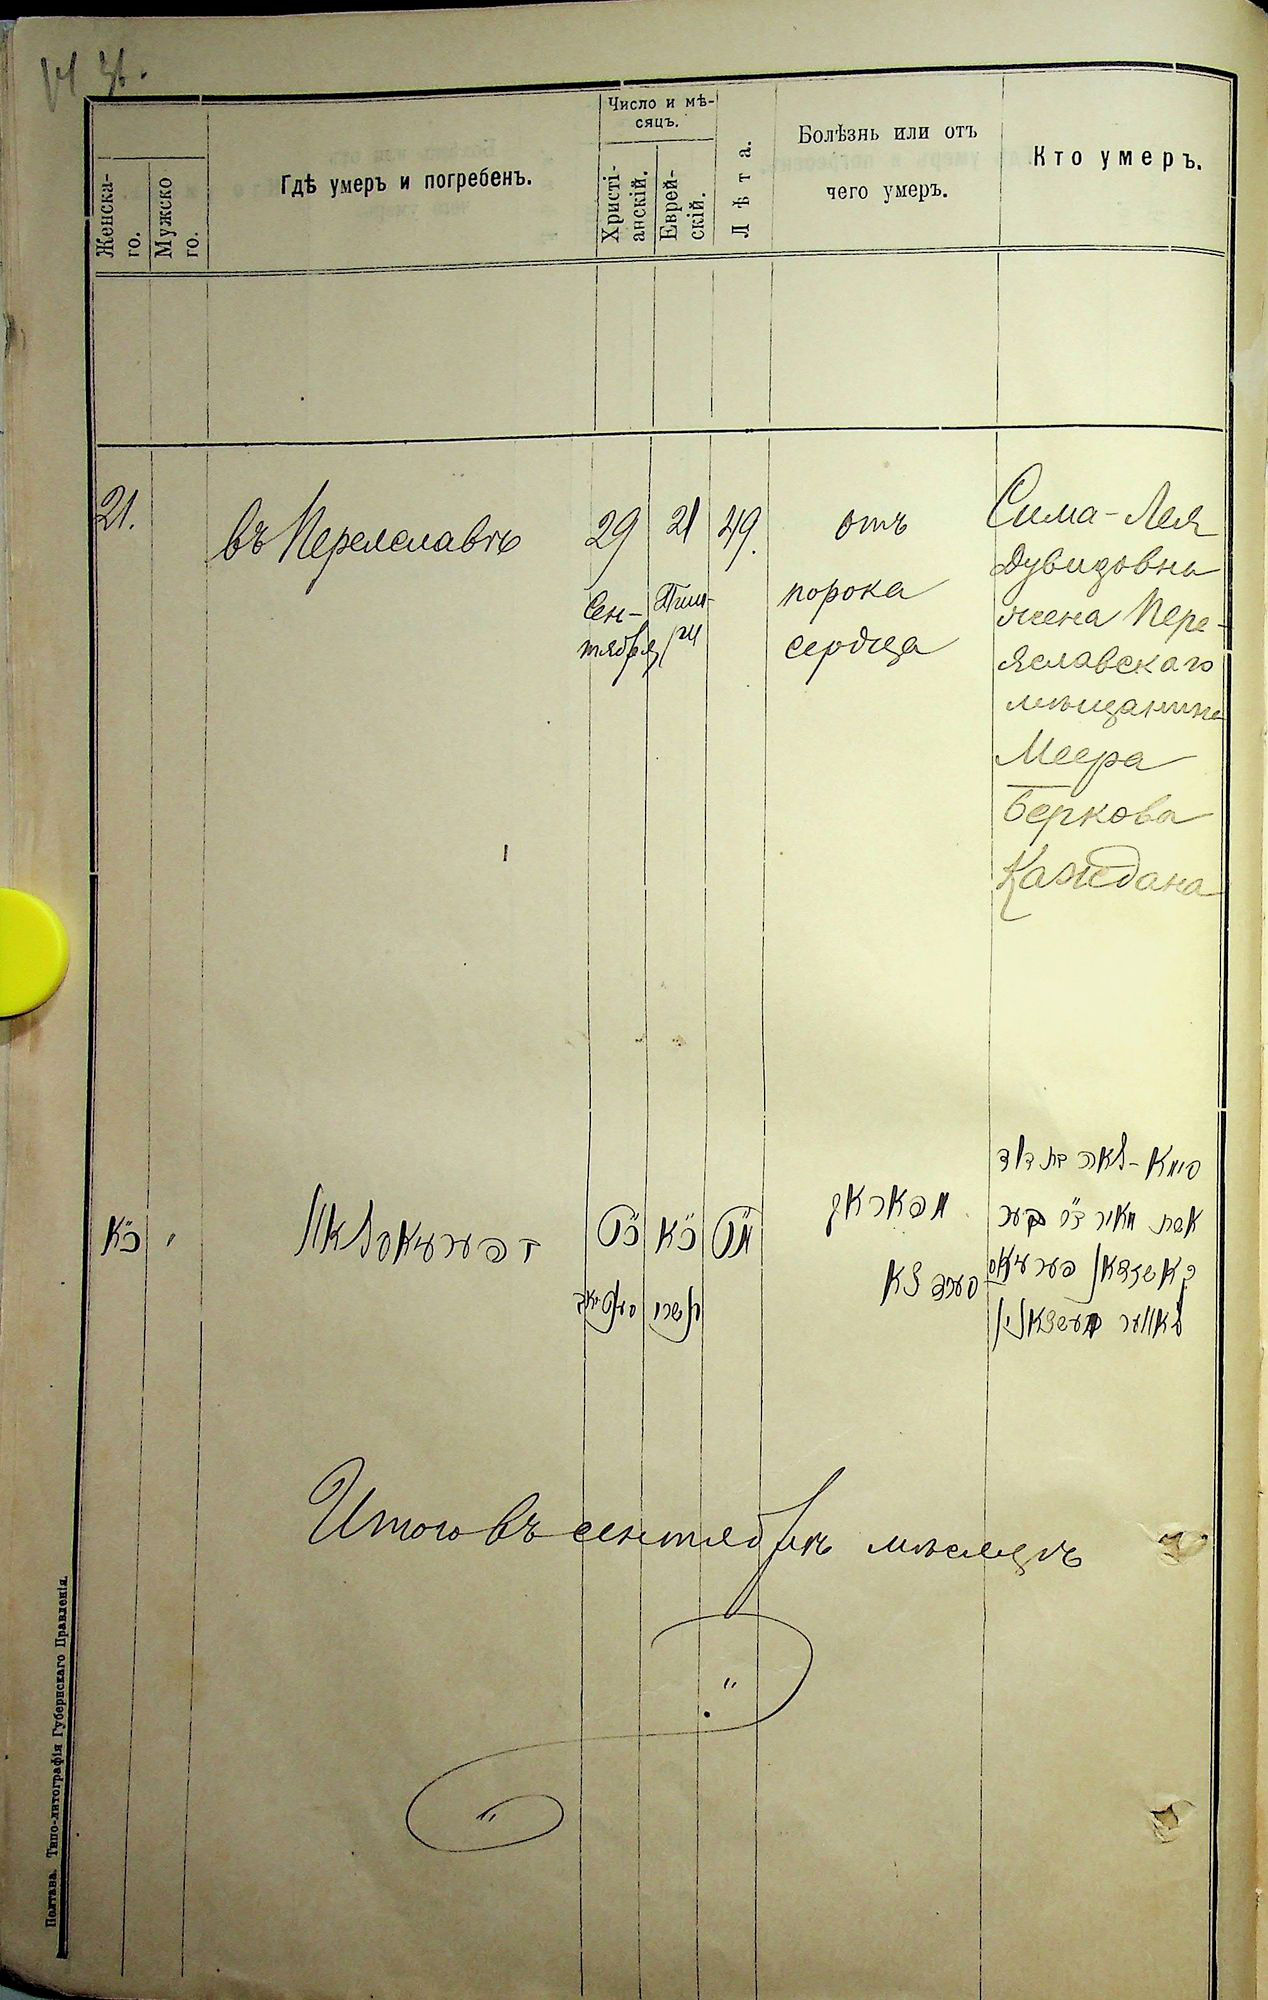 Женска-
го.
Мужско
го.
Гдѣ умеръ и погребенъ.
Число и мѣ-
сяцъ.
Христі-
анскій.
Еврей-
скій.
Лѣта.
Болѣзнь или отъ
чего умеръ.
Кто умеръ.
21.
въ Переяславѣ
29
Сен-
тября
21
Тиш-
ри
49.
отъ
порока
сердца
Сима-Лея
Дувидовна
жена Пере-
яславскаго
мѣщанина
Меера
Беркова
Каждана
כ״א
כ״ט
כ״א
תשרי
מ״ט
סימא-לאה בת דוד
אשת מאיר
Итого въ сентябрѣ мѣсяцѣ
Полтава. Типо-литографія Губернскаго Правленія.